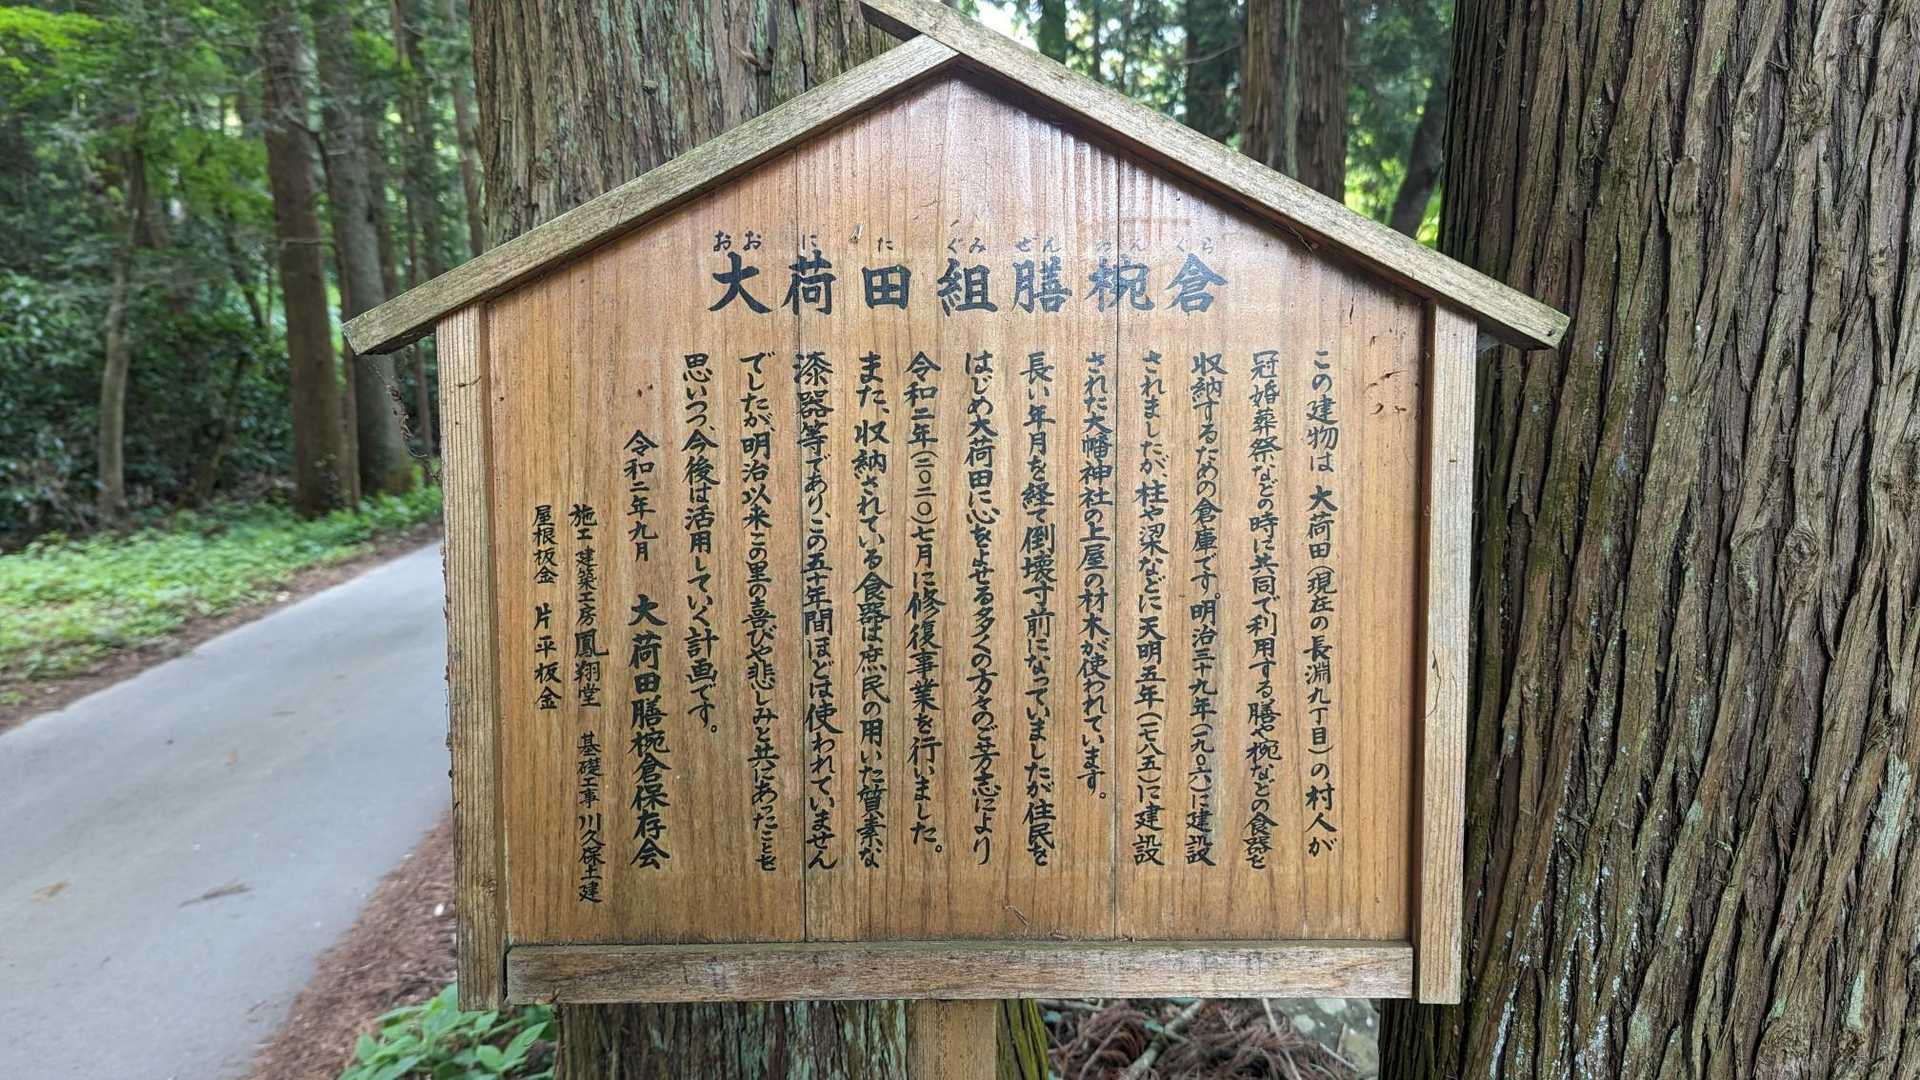 おおにたぐみぜんわんぐら
大荷田組膳椀倉
この建物は 大荷田(現在の長淵九丁目)の村人が
冠婚葬祭などの時に共同で利用する膳や椀などの食器を
収納するための倉庫です。明治三十九年(一九〇六)に建設
されましたが、柱や梁などに天明五年(一七八五)に建設
された大幡神社の上屋の材木が使われています。
長い年月を経て倒壊寸前になっていましたが住民を
はじめ大荷田に心をよせる多くの方々のご芳志により
令和二年(二〇二〇)七月に修復事業を行いました。
また、収納されている食器は庶民の用いた質素な
漆器等であり、この五十年間ほどは使われていません
でしたが明治以来この里の喜びや悲しみと共にあったことを
思いつつ、今後は活用していく計画です。
令和二年九月 大荷田膳椀倉保存会
施工 建築工房 鳳翔堂 基礎工事 川久保土建
屋根板金 片平板金